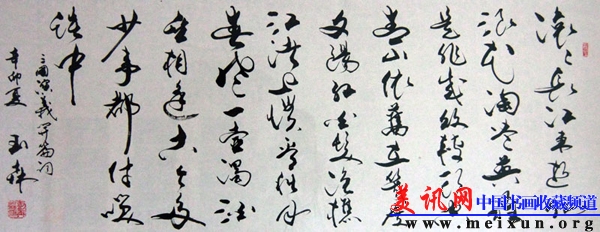 滚〻长江东逝水
浪花淘尽英雄
是非成败转头空
青山依旧在几度
夕陽红白发渔樵
江渚上惯看秋月
春风一壶濁酒
喜相逢古今多
少事都付笑
谈中
三國演義開篇词
辛卯夏
美讯网
中国书画收藏频道
www.meixun.org